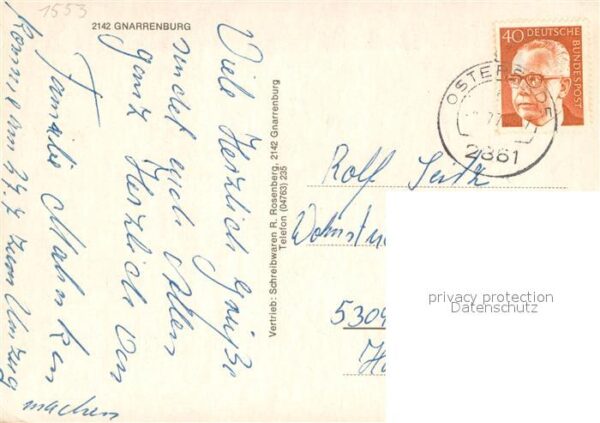 1553
2142 GNARRENBURG
Viele Herzlich Grüße
sendet Euch Allen
ganz Herzlich von
Familie Mahnken
komme am 27.7 zum Umzug
machen
Vertrieb: Schreibwaren R. Rosenberg, 2142 Gnarrenburg
Telefon (04763) 235
40 DEUTSCHE
BUNDESPOST
2861
Rolf Seitz
5309
privacy protection
Datenschutz